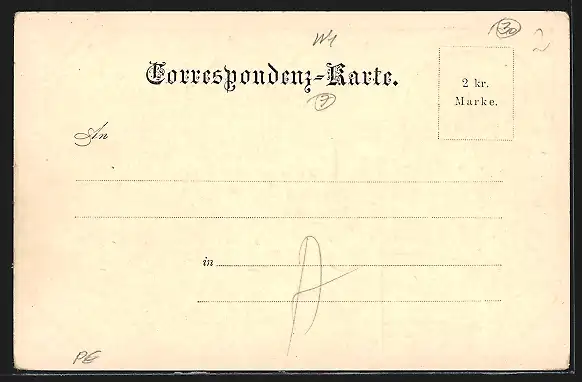 30
Correspondenz-Karte.
2 kr.
Marke.
An
in
A
PE